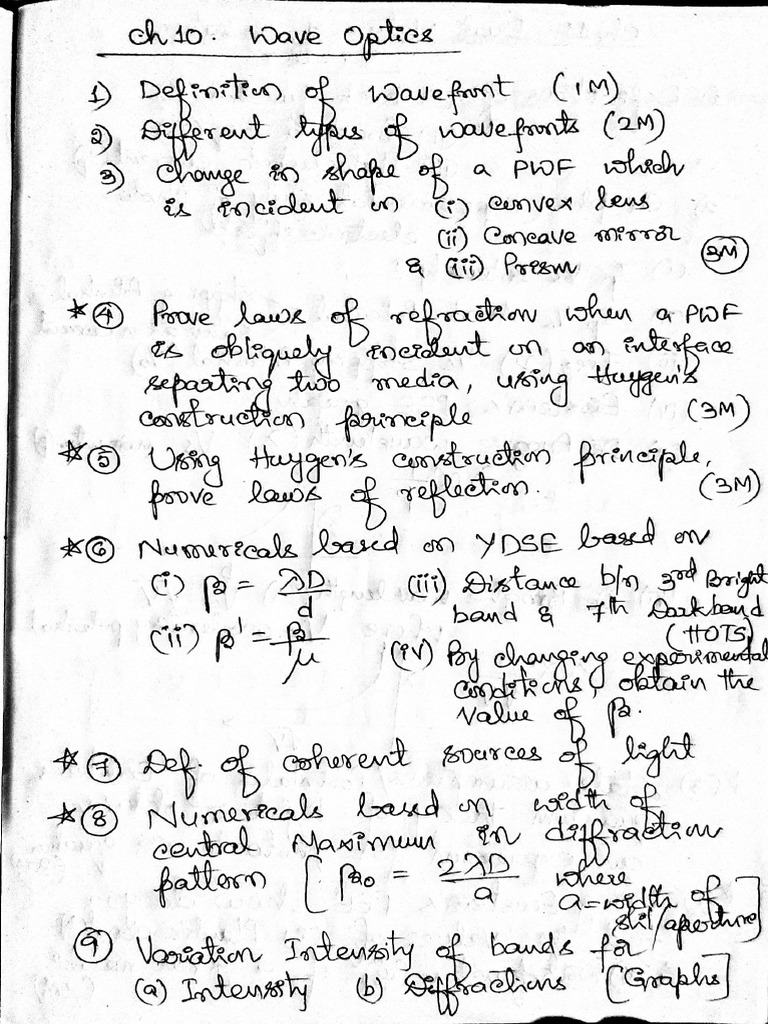 Ch 10. Wave Optics
1) Definition of wavefront (1M)
2) Different types of wavefronts (2M)
3) Change in shape of a PWF which
is incident on (i) convex lens
(ii) Concave mirror
& (iii) Prism (3M)
* ④ Prove laws of refraction when a PWF
is obliquely incident on an interface
separting two media, using Huygen's
construction principle (3M)
* ⑤ Using Huygen's construction principle,
prove laws of reflection. (3M)
* ⑥ Numericals based on YDSE based on
(i) β = λD/d (iii) Distance b/n 3rd Bright
band & 7th Dark band
(HOTS)
(ii) β' = β/μ (iv) By changing experimental
conditions, obtain the
value of β.
* ⑦ Def. of coherent sources of light
* ⑧ Numericals based on width of
central Maximum in diffraction
pattern [β₀ = 2λD/a where
a = width of
slit/aperture]
⑨ Variation Intensity of bands for
(a) Intensity (b) Diffractions [Graphs]